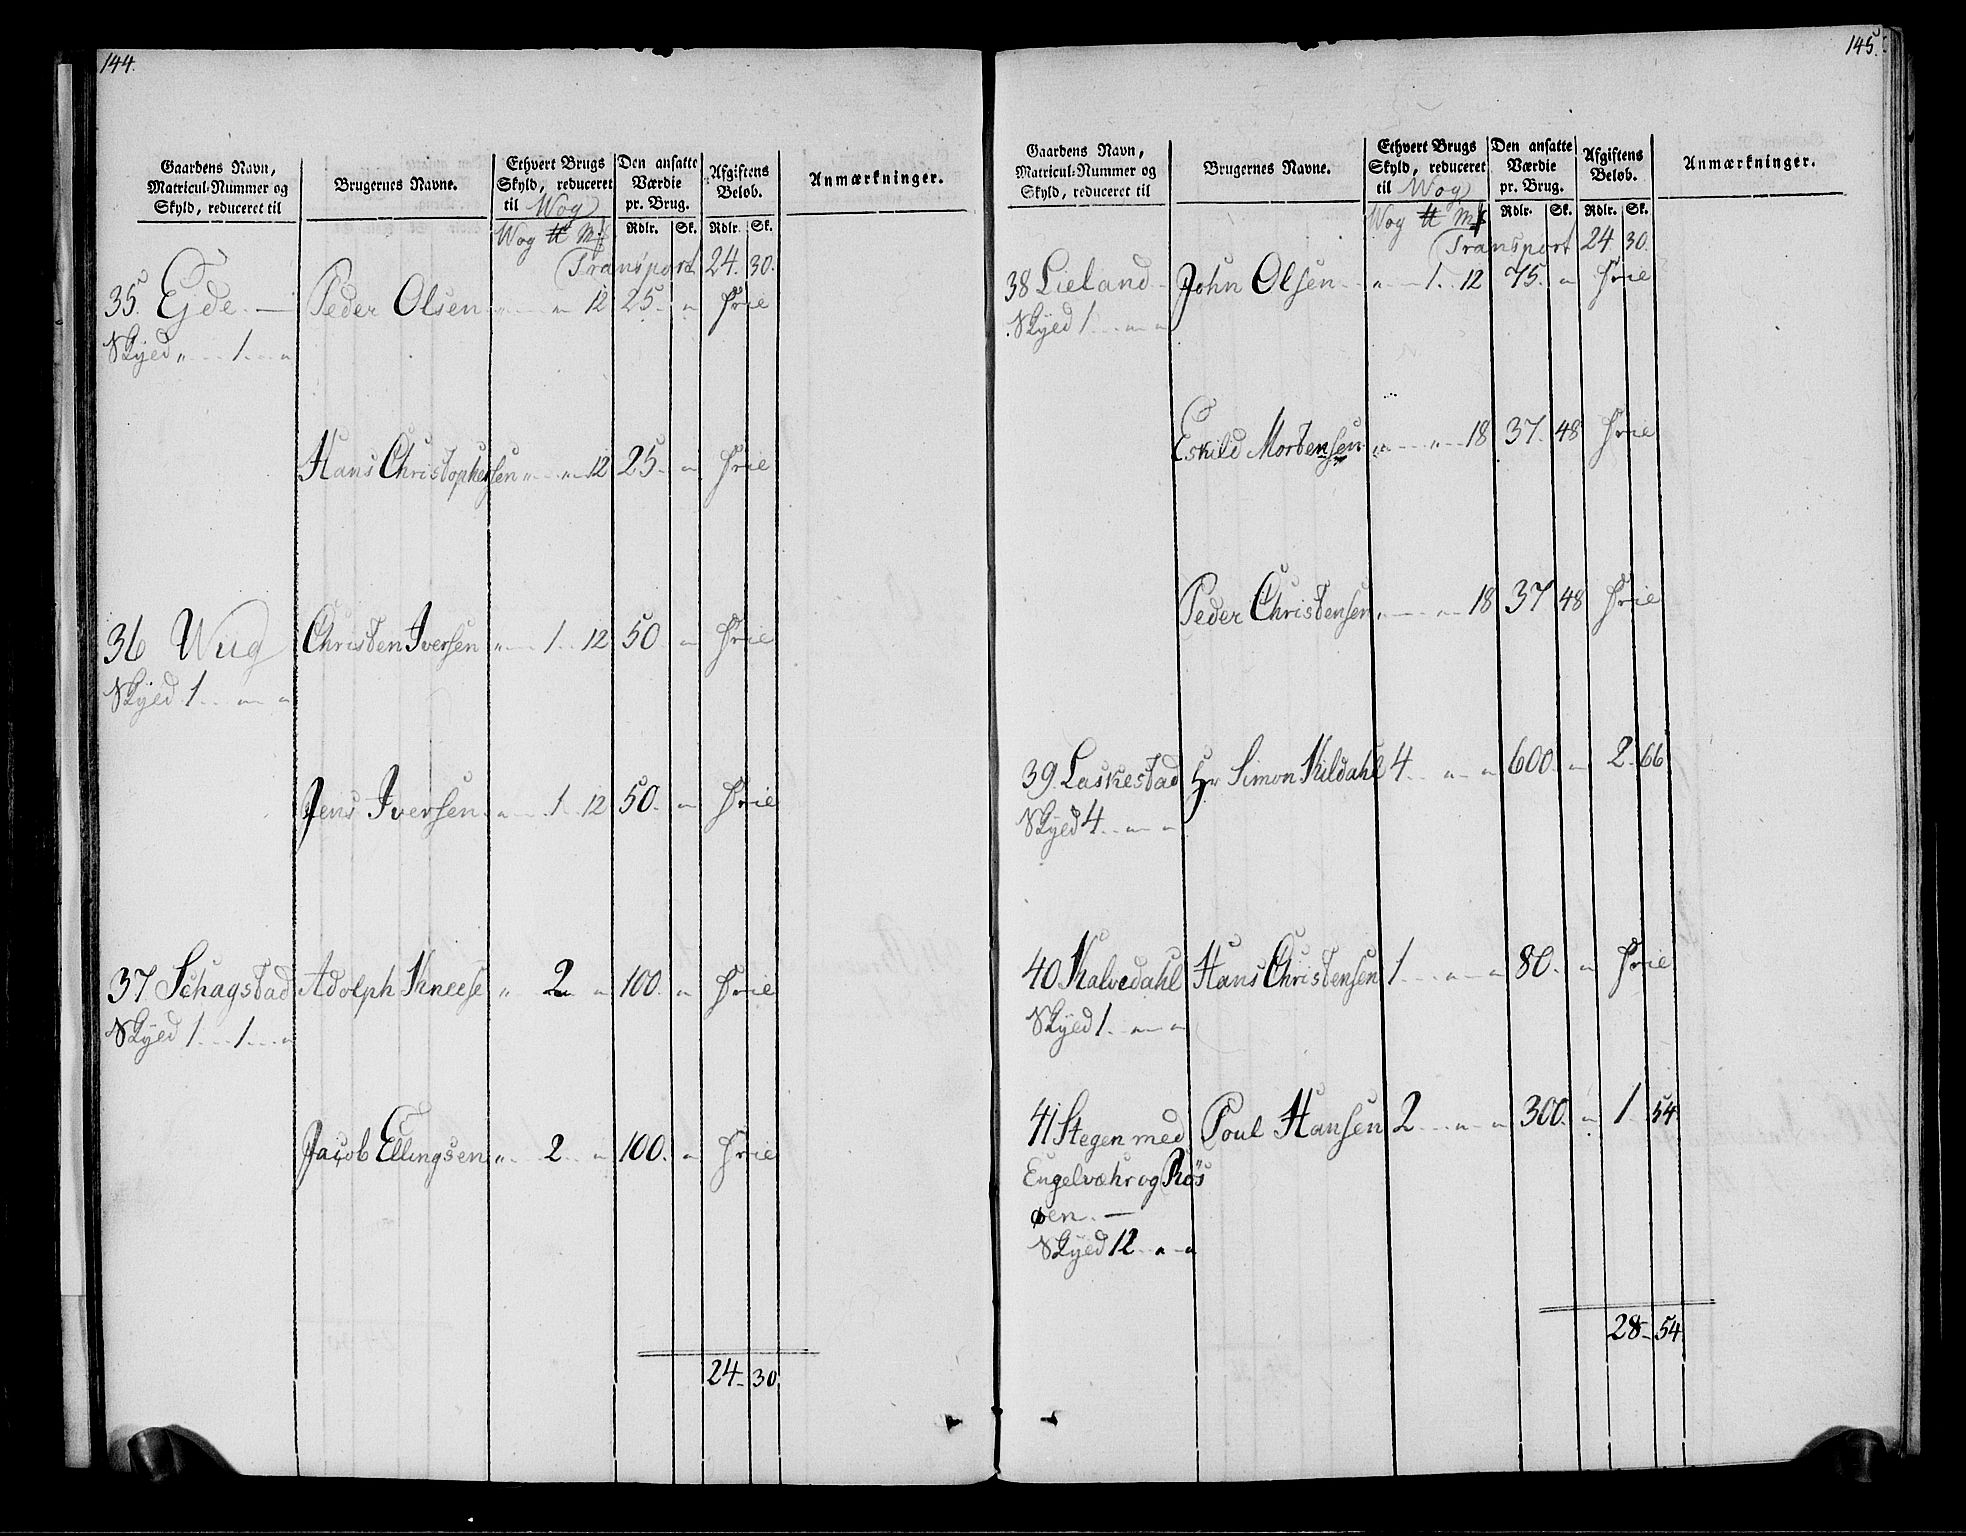 144.
Gaardens Navn, Matricul-Nummer og Skyld, reduceret til
Brugernes Navne.
Ethvert Brugs Skyld, reduceret til Wog
Den ansatte Værdie pr. Brug.
Afgiftens Beløb.
Anmærkninger.
Wog ℔ Mk Rdlr. Sk. Rdlr. Sk.
Transport 24. 30.
35. Ejde. — Peder Olsen " " 12 25. " frie
Skyed " 1 "
Hans Christophersen " " 12 25. " frie
36 Wug Christen Iversen " 1 12 50. " frie
Skyed 1 " "
Jens Iversen " 1 12 50. " frie
37 Schagstad Adolph Kneese " 2 " 100. " frie
Skyed 1 1 "
Jacob Ellingsen " 2 " 100. " frie
24 30.
145.
Gaardens Navn, Matricul-Nummer og Skyld, reduceret til
Brugernes Navne.
Ethvert Brugs Skyld, reduceret til Wog
Den ansatte Værdie pr. Brug.
Afgiftens Beløb.
Anmærkninger.
Wog ℔ Mk Rdlr. Sk. Rdlr. Sk.
Transport 24 30.
38 Lieland John Olsen " 1 12 75. " frie
Skyed 1 " "
Eskild Mortensen " " 18 37. 48 frie
Peder Christensen " " 18 37 48 frie
39. Laskestad Hr Simon Kildahl 4 " " 600. " 2 66
Skyed 4 " "
40 Kalvedahl Hans Christensen 1 " " 80. " frie
Skyed 1 " "
41 Stegen med Poul Hansen 2 " " 300. " 1 54
Engelvæhr og Røs
øen. —
Skyed 12 " "
28 54